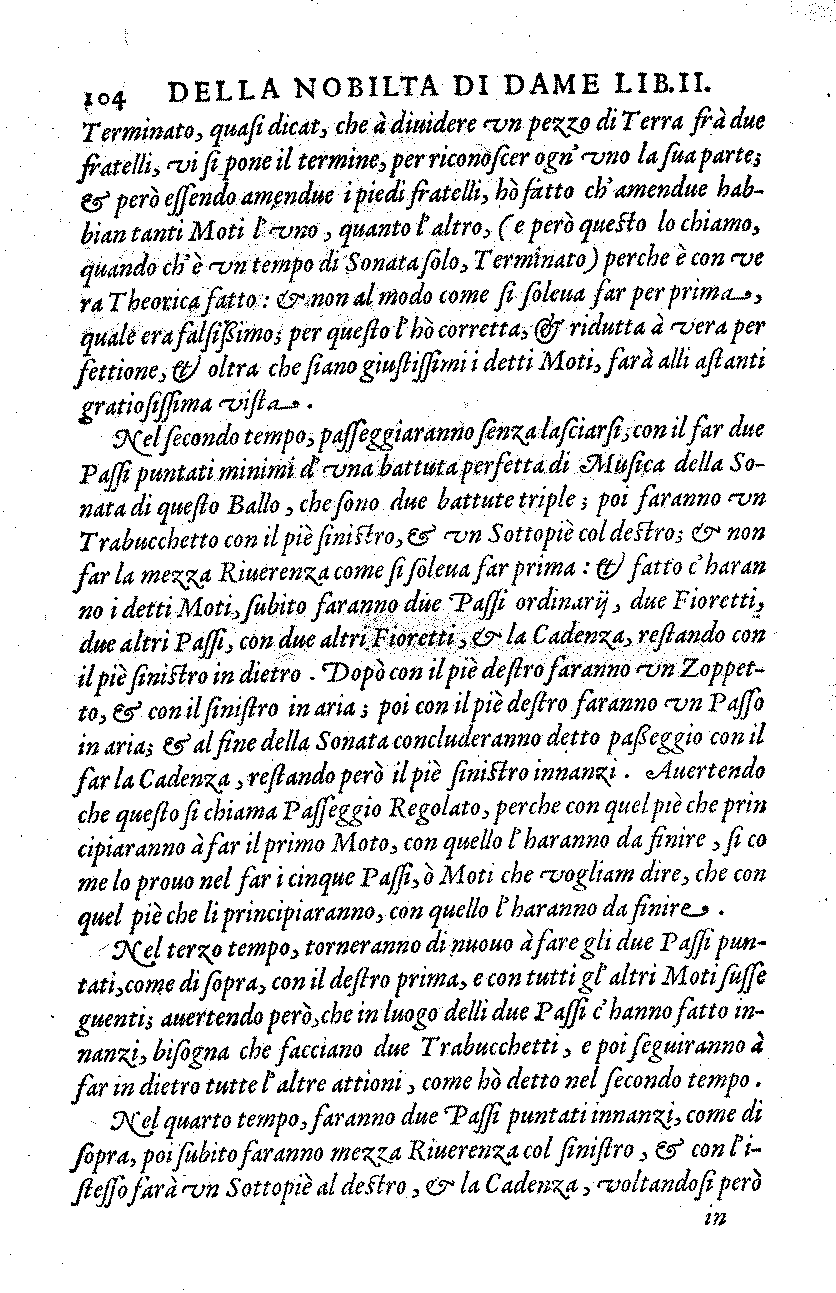 104 DELLA NOBILTA DI DAME LIB.II.
Terminato, quaſi dicat, che à diuidere vn pezzo di Terra frà due
fratelli, vi ſi pone il termine, per riconoſcer ogn' vno la ſua parte;
& però eſſendo amendue i piedi fratelli, hò fatto ch' amendue hab-
bian tanti Moti l' vno, quanto l' altro, (e però queſto lo chiamo,
quando ch' è vn tempo di Sonata ſolo, Terminato) perche è con ve
ra Theorica fatto: & non al modo come ſi ſoleua far per prima,
quale era falſiſſimo; per queſto l' hò corretta, & ridutta à vera per
fettione, & oltra che ſiano giuſtiſſimi i detti Moti, farà alli aſtanti
gratioſiſſima viſta.
Nel ſecondo tempo, paſſeggiaranno ſenza laſciarſi, con il far due
Paſſi puntati minimi d' vna battuta perfetta di Muſica della So-
nata di queſto Ballo, che ſono due battute triple; poi faranno vn
Trabucchetto con il piè ſiniſtro, & vn Sottopiè col deſtro; & non
far la mezza Riuerenza come ſi ſoleua far prima: & fatto c' haran
no i detti Moti, ſubito faranno due Paſſi ordinarij, due Fioretti,
due altri Paſſi, con due altri Fioretti, & la Cadenza, reſtando con
il piè ſiniſtro in dietro. Dopò con il piè deſtro faranno vn Zoppet-
to, & con il ſiniſtro in aria; poi con il piè deſtro faranno vn Paſſo
in aria; & al fine della Sonata concluderanno detto paſſeggio con il
far la Cadenza, reſtando però il piè ſiniſtro innanzi. Auertendo
che queſto ſi chiama Paſſeggio Regolato, perche con quel piè che prin
cipiaranno à far il primo Moto, con quello l' haranno da finire, ſi co
me lo prouo nel far i cinque Paſſi, ò Moti che vogliam dire, che con
quel piè che li principiaranno, con quello l' haranno da finire.
Nel terzo tempo, torneranno di nuouo à fare gli due Paſſi pun-
tati, come di ſopra, con il deſtro prima, e con tutti gl' altri Moti ſuſſe
guenti; auertendo però, che in luogo delli due Paſſi c' hanno fatto in-
nanzi, biſogna che facciano due Trabucchetti, e poi ſeguiranno à
far in dietro tutte l' altre attioni, come hò detto nel ſecondo tempo.
Nel quarto tempo, faranno due Paſſi puntati innanzi, come di
ſopra, poi ſubito faranno mezza Riuerenza col ſiniſtro, & con l' i-
ſteſſo farà vn Sottopiè al deſtro, & la Cadenza, voltandoſi però
in